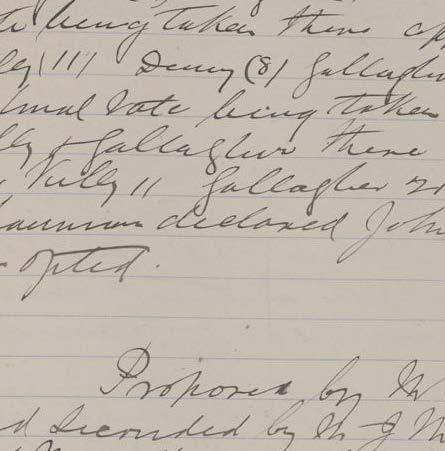 being taken there
(11) Denny (8) Gallagher
final vote being taken
Gallagher there
Kelly 11 Gallagher
Chairman declared John
opted.
Proposed by Mr
d seconded by Mr J M